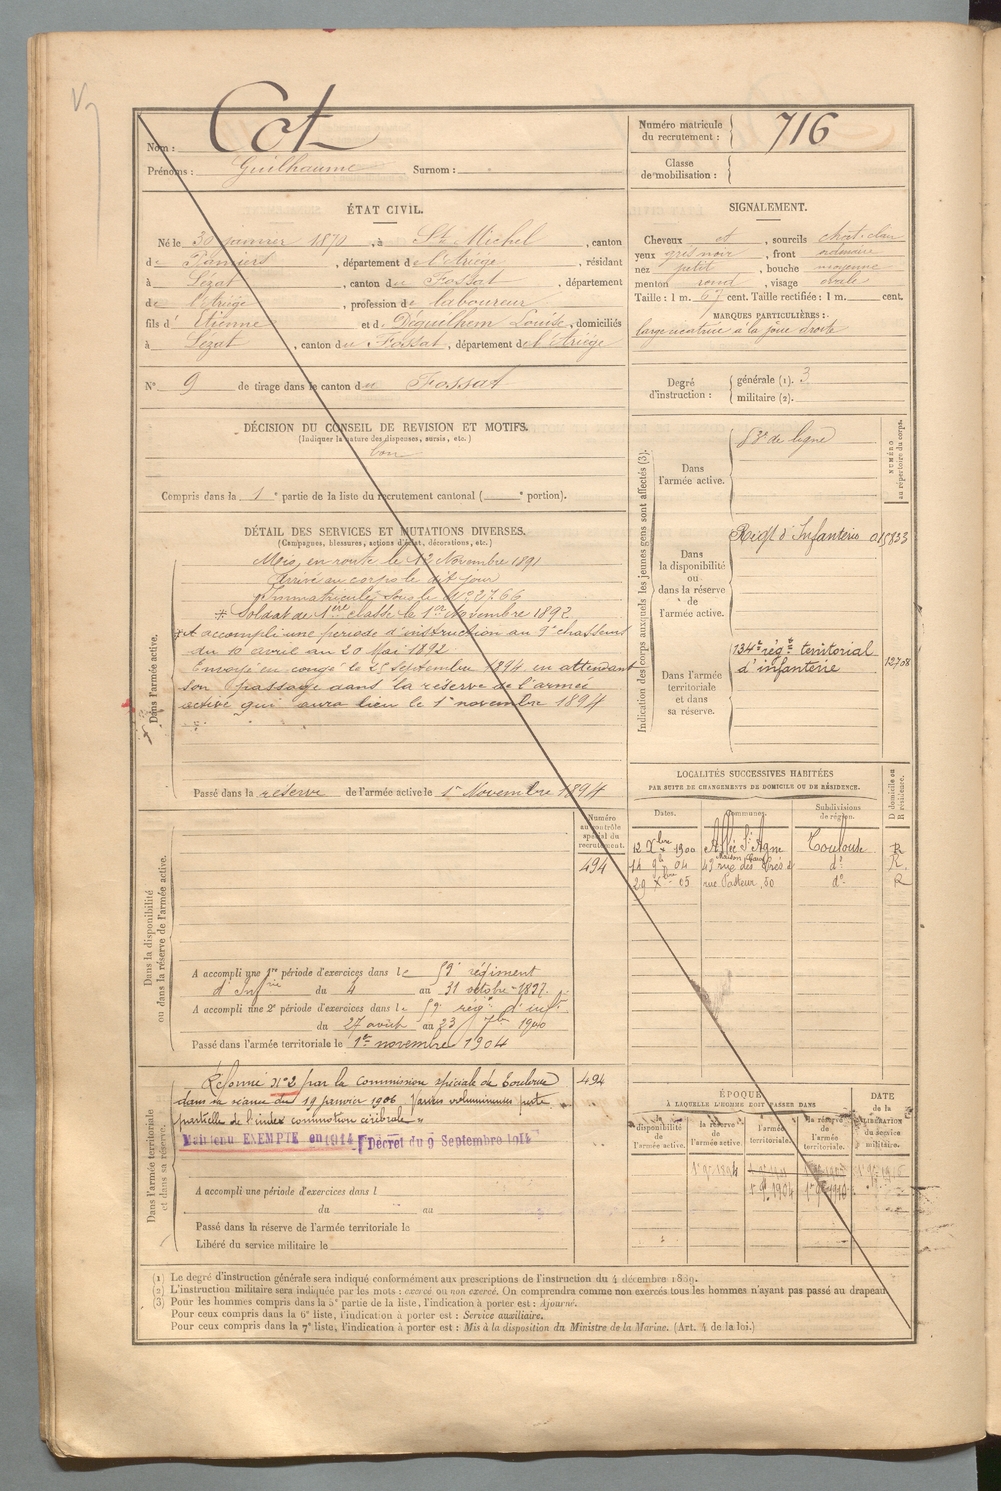 Nom : Cot
Prénoms : Guilhaume Surnom :
Numéro matricule du recrutement : 716
Classe de mobilisation :
ÉTAT CIVIL.
Né le 30 janvier 1870, à St Michel, canton
de Pamiers, département de l'Ariège, résidant
à Lézat, canton du Fossat, département
de l'Ariège, profession de laboureur
fils d' Etienne et de Déguilhem Louise, domiciliés
à Lezat, canton du Fossat, département de l'Ariège
N° 9 de tirage dans le canton du Fossat
SIGNALEMENT.
Cheveux et, sourcils chat. clair
yeux gris noir, front ordinaire
nez petit, bouche moyenne
menton rond, visage ovale
Taille : 1 m. 67 cent. Taille rectifiée : 1 m. cent.
MARQUES PARTICULIÈRES :
large cicatrice à la joue droite
Degré d'instruction : générale (1). 3
militaire (2).
DÉCISION DU CONSEIL DE REVISION ET MOTIFS.
(Indiquer la nature des dispenses, sursis, etc.)
bon
Compris dans la 1e partie de la liste du recrutement cantonal ( e portion).
DÉTAIL DES SERVICES ET MUTATIONS DIVERSES.
(Campagnes, blessures, actions d'éclat, décorations, etc.)
Dans l'armée active.
Mis en route le 12 Novembre 1891
Arrivé au corps le dit jour
Immatriculé sous le N° 2766
Soldat de 1ère classe le 1er Novembre 1892
A accompli une periode d'instruction au 9e chasseurs
du 10 avril au 20 Mai 1892
Envoyé en congé le 25 Septembre 1894 en attendant
son passage dans la réserve de l'armée
active qui aura lieu le 1er novembre 1894
Passé dans la réserve de l'armée active le 1er Novembre 1894
Indication des corps auxquels les jeunes gens sont affectés (3).
NUMÉRO au répertoire du corps.
Dans l'armée active.
83e de ligne
Dans la disponibilité ou dans la réserve de l'armée active.
Régt d'Infanterie
Dans l'armée territoriale et dans sa réserve.
134e régt territorial
d'infanterie
12708
LOCALITÉS SUCCESSIVES HABITÉES
PAR SUITE DE CHANGEMENTS DE DOMICILE OU DE RÉSIDENCE.
Dates. Communes. Subdivisions de région. D domicile ou R résidence.
12 Xbre 1900 Allée St Agne Toulouse R
14 9b 04 43 rue des d° R.
29 Xbre 05 rue Pasteur, 50 d° R
Numéro au contrôle spécial du recrutement.
494
Dans la disponibilité ou dans la réserve de l'armée active.
A accompli une 1re période d'exercices dans le 59e régiment
d'Infrie du 4 au 31 octobre 1897.
A accompli une 2e période d'exercices dans le 59e régt d'inft
du 27 août au 23 7bre 1900
Passé dans l'armée territoriale le 1er novembre 1904
Dans l'armée territoriale et dans sa réserve.
Réformé N° 2 par la commission spéciale de Toulouse 494
dans sa séance du 19 janvier 1906 varices volumineuses perte
partielle de l'index commotion cérébrale.
Maintenu EXEMPTÉ en 1914 [Décret du 9 Septembre 1914
A accompli une période d'exercices dans l
du au
Passé dans la réserve de l'armée territoriale le
Libéré du service militaire le
ÉPOQUE
À LAQUELLE L'HOMME DOIT PASSER DANS
la disponibilité de l'armée active. la réserve de l'armée active. l'armée territoriale. la réserve de l'armée territoriale.
DATE de la LIBÉRATION du service militaire.
1er 9bre 1894
1er 9b 1904 1er 9b 1910
(1) Le degré d'instruction générale sera indiqué conformément aux prescriptions de l'instruction du 4 décembre 1889.
(2) L'instruction militaire sera indiquée par les mots : exercé ou non exercé. On comprendra comme non exercés tous les hommes n'ayant pas passé au drapeau.
(3) Pour les hommes compris dans la 5e partie de la liste, l'indication à porter est : Ajourné.
Pour ceux compris dans la 6e liste, l'indication à porter est : Service auxiliaire.
Pour ceux compris dans la 7e liste, l'indication à porter est : Mis à la disposition du Ministre de la Marine. (Art. 4 de la loi.)